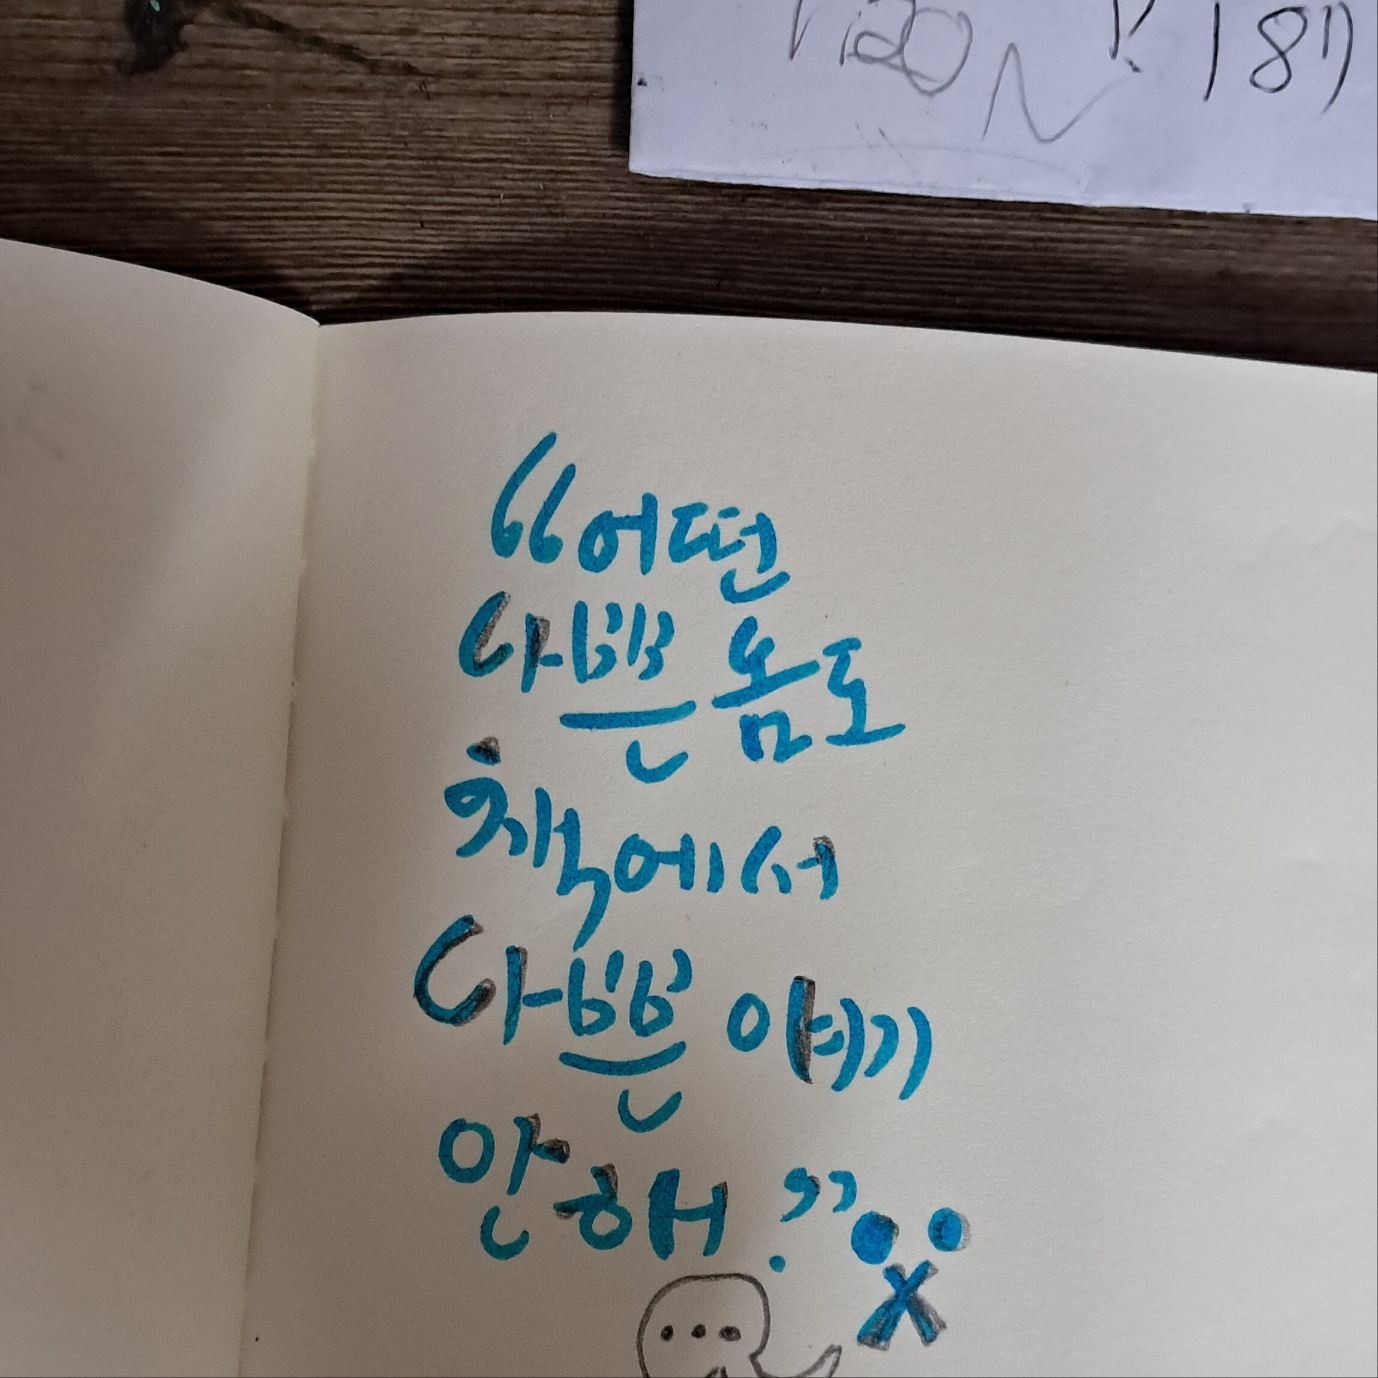 “어떤
나쁜 놈도
책에서
나쁜 얘기
안 해.”